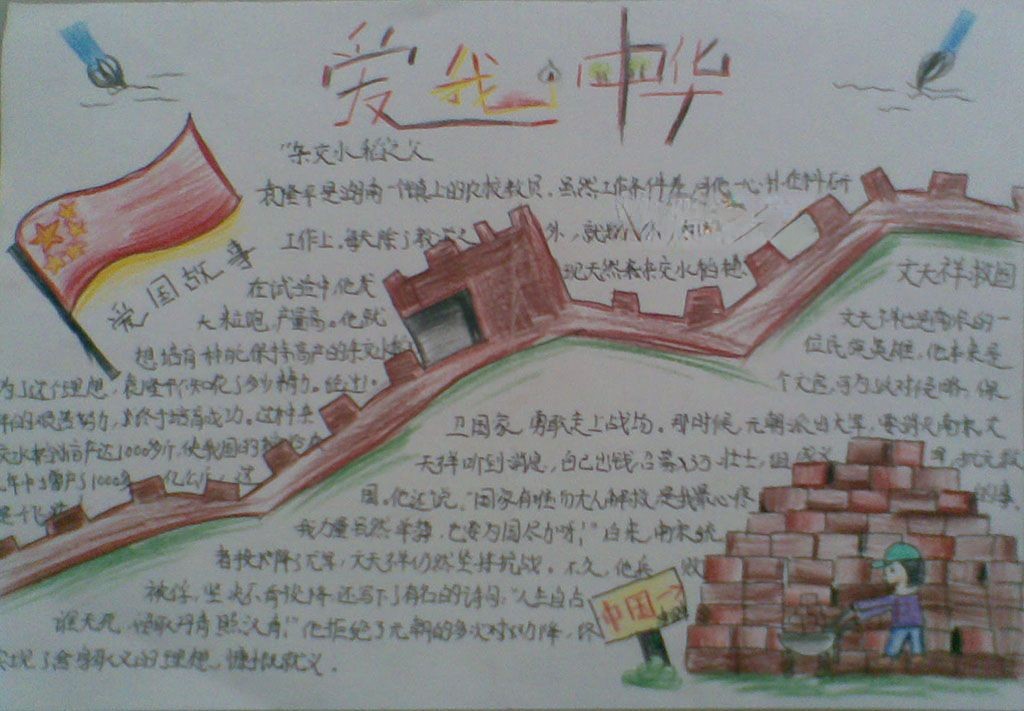 爱我中华
"杂交水稻之父
袁隆平是湖南一个镇上的农校教员。虽然工作条件差,用他一心扑在科研
工作上,每天除了教 外,就
爱国故事
在试验中他发 现天然杂交水稻
大粒饱,产量高。他就
想培育一种能保持高产的杂交
为了这个理想,袁隆平不知花了多少精力。经过
年的艰苦努力,终于培育成功。这种杂
交水稻 亩产达1000多斤,使我国的
年中增产了1000多 亿公斤,这
是个
文天祥救国
文天祥也是南宋的一
位民族英雄,他本来是
个文官,可为了对付侵略,保
卫国家,勇敢走上战场。那时候,元朝派出大军,要消灭南宋,文
天祥听到消息,自己出钱,召募 3万壮士,组成义 军,抗元救
国。他还说:"国家有 而无人解救,是我最心疼 的事。
我力量虽然单薄,也要为国尽力呀!"后来,南宋统
者投降了元军,文天祥仍然坚持抗战。不久,他兵 败
被俘,坚决不肯投降,还写下了有名的诗句:"人生自古
谁无死,留取丹青照汉青!"他拒绝了元朝的多次劝降,终
实现了舍身取义的理想,慷慨就义。
中国